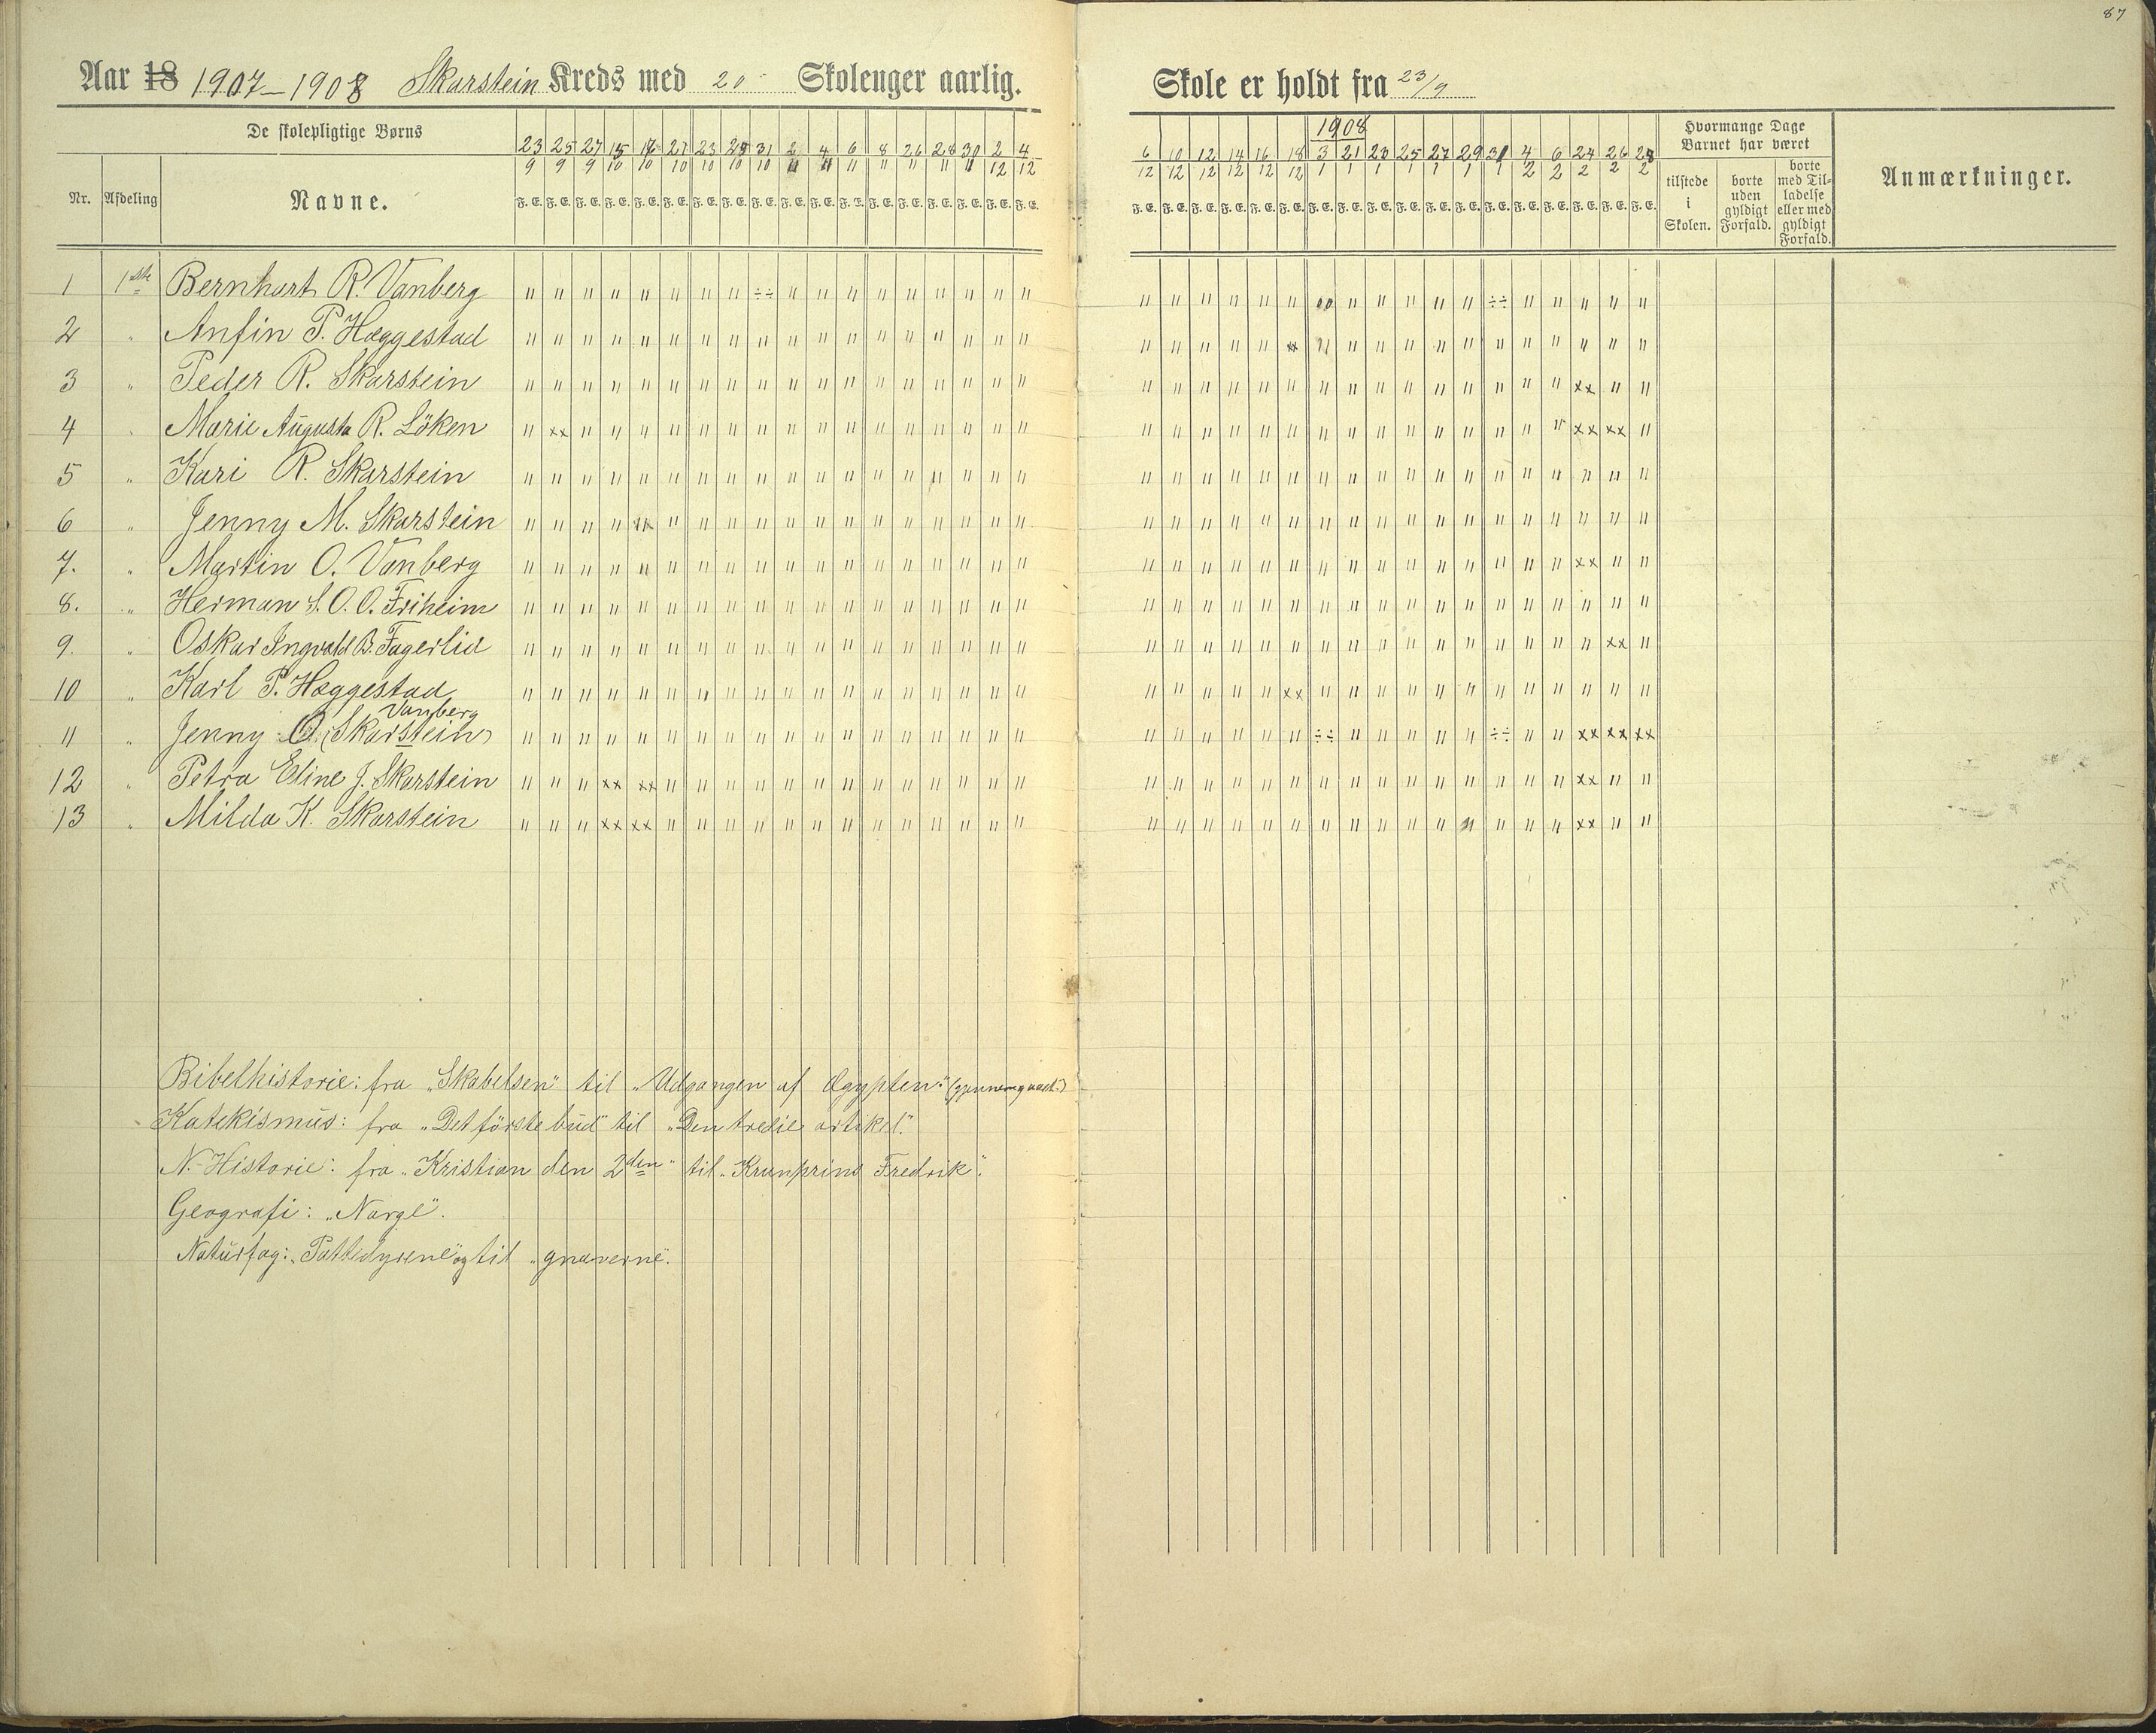 87
Aar 18 1907–1908 Skarstein Kreds med 20 Skoleuger aarlig.
Skole er holdt fra 23/9
De skolepligtige Børns
23 25 27 15 27 23 31 2 4 6 8 26 28 30 2 4
9 9 9 10 10 10 10 10 10 11 11 11 11 11 11 11 12 12
Nr. Afdeling Navne.
F. E. F. E. F. E. F. E. F. E. F. E. F. E. F. E. F. E. F. E. F. E. F. E. F. E. F. E. F. E. F. E. F. E. F. E.
1908
6 10 12 14 16 18 3 21 23 25 27 29 31 4 6 24 26 28
12 12 12 12 12 12 1 1 1 1 1 1 1 2 2 2 2 2
F. E. F. E. F. E. F. E. F. E. F. E. F. E. F. E. F. E. F. E. F. E. F. E. F. E. F. E. F. E. F. E. F. E. F. E.
Hvormange Dage
Barnet har været
tilstede
i
Skolen.
borte
uden
gyldigt
Forfald.
borte
med Til-
ladelse
eller med
gyldigt
Forfald.
Anmærkninger.
1 1ste Bernhart R. Vanberg " " " " " " " " ÷÷ " " " " " " " " " " " " " " " " " " " " " ÷÷ " " " " "
2 " Anfin P. Hæggestad " " " " " " " " " " " " " " " " " " " " " " " xx " " " " " " " " " " " "
3 " Peder R. Skarstein " " " " " " " " " " " " " " " " " " " " " " " " " " " " " " " " " xx " "
4 " Marie Augusta R. Löken " xx " " " " " " " " " " " " " " " " " " " " " " " " " " " " " " " xx xx "
5 " Kari R. Skarstein " " " " " " " " " " " " " " " " " " " " " " " " " " " " " " " " " " " "
6 " Jenny M. Skarstein " " " " " " " " " " " " " " " " " " " " " " " " " " " " " " " " " " "
7. " Martin O. Vanberg " " " " " " " " " " " " " " " " " " " " " " " " " " " " " " " " " xx " "
8. " Herman S. O. O. Friheim " " " " " " " " " " " " " " " " " " " " " " " " " " " " " " " " " " " "
9. " Oskar Ingvald B. Fagerlid " " " " " " " " " " " " " " " " " " " " " " " " " " " " " " " " " " xx "
10 " Karl P. Hæggestad " " " " " " " " " " " " " " " " " " " " " " " xx " " " " " " " " " " " "
Vanberg
11 " Jenny O. (Skarstein) " " " " " " " " " " " " " " " " " " " " " " " " ÷÷ " " " " " ÷÷ " " xx xx xx
12 " Petra Eline J. Skarstein " " " xx xx " " " " " " " " " " " " " " " " " " " " " " " " " " " " xx " "
13 " Milda K. Skarstein " " " xx xx " " " " " " " " " " " " " " " " " " " " " " " " " " " " xx " "
Bibelhistorie: fra „Skabelsen" til „Udgangen af Ægypten". (gjennemgaaet.)
Katekismus: fra „Det første bud" til „Den tredie artikel."
N.-Historie: fra „Kristian den 2den" til „Kronprins Fredrik".
Geografi: „Norge".
Naturfag: „Pattedyrene" og til „gnaverne".